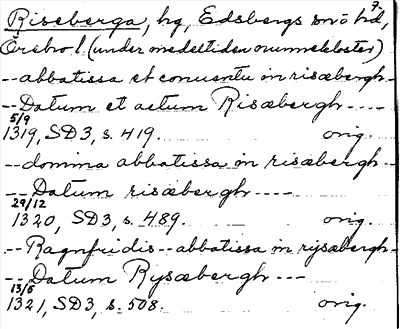 Riseberga, hg, Edsbergs sn o hd,
Örebro l. (under medeltiden nunnekloster)
-- abbatissa et conuentu in risæbergh --
-- Datum et actum Risæbergh ----
5/9
1319, SD3, s. 419. orig.
-- domina abbatissa in risæbergh --
-- Datum risæbergh ----
29/12
1320, SD3, s. 489. orig.
-- Ragnfridis -- abbatissa in rysæbergh --
-- Datum Rysæbergh ---
13/5
1321, SD3, s. 508. orig.